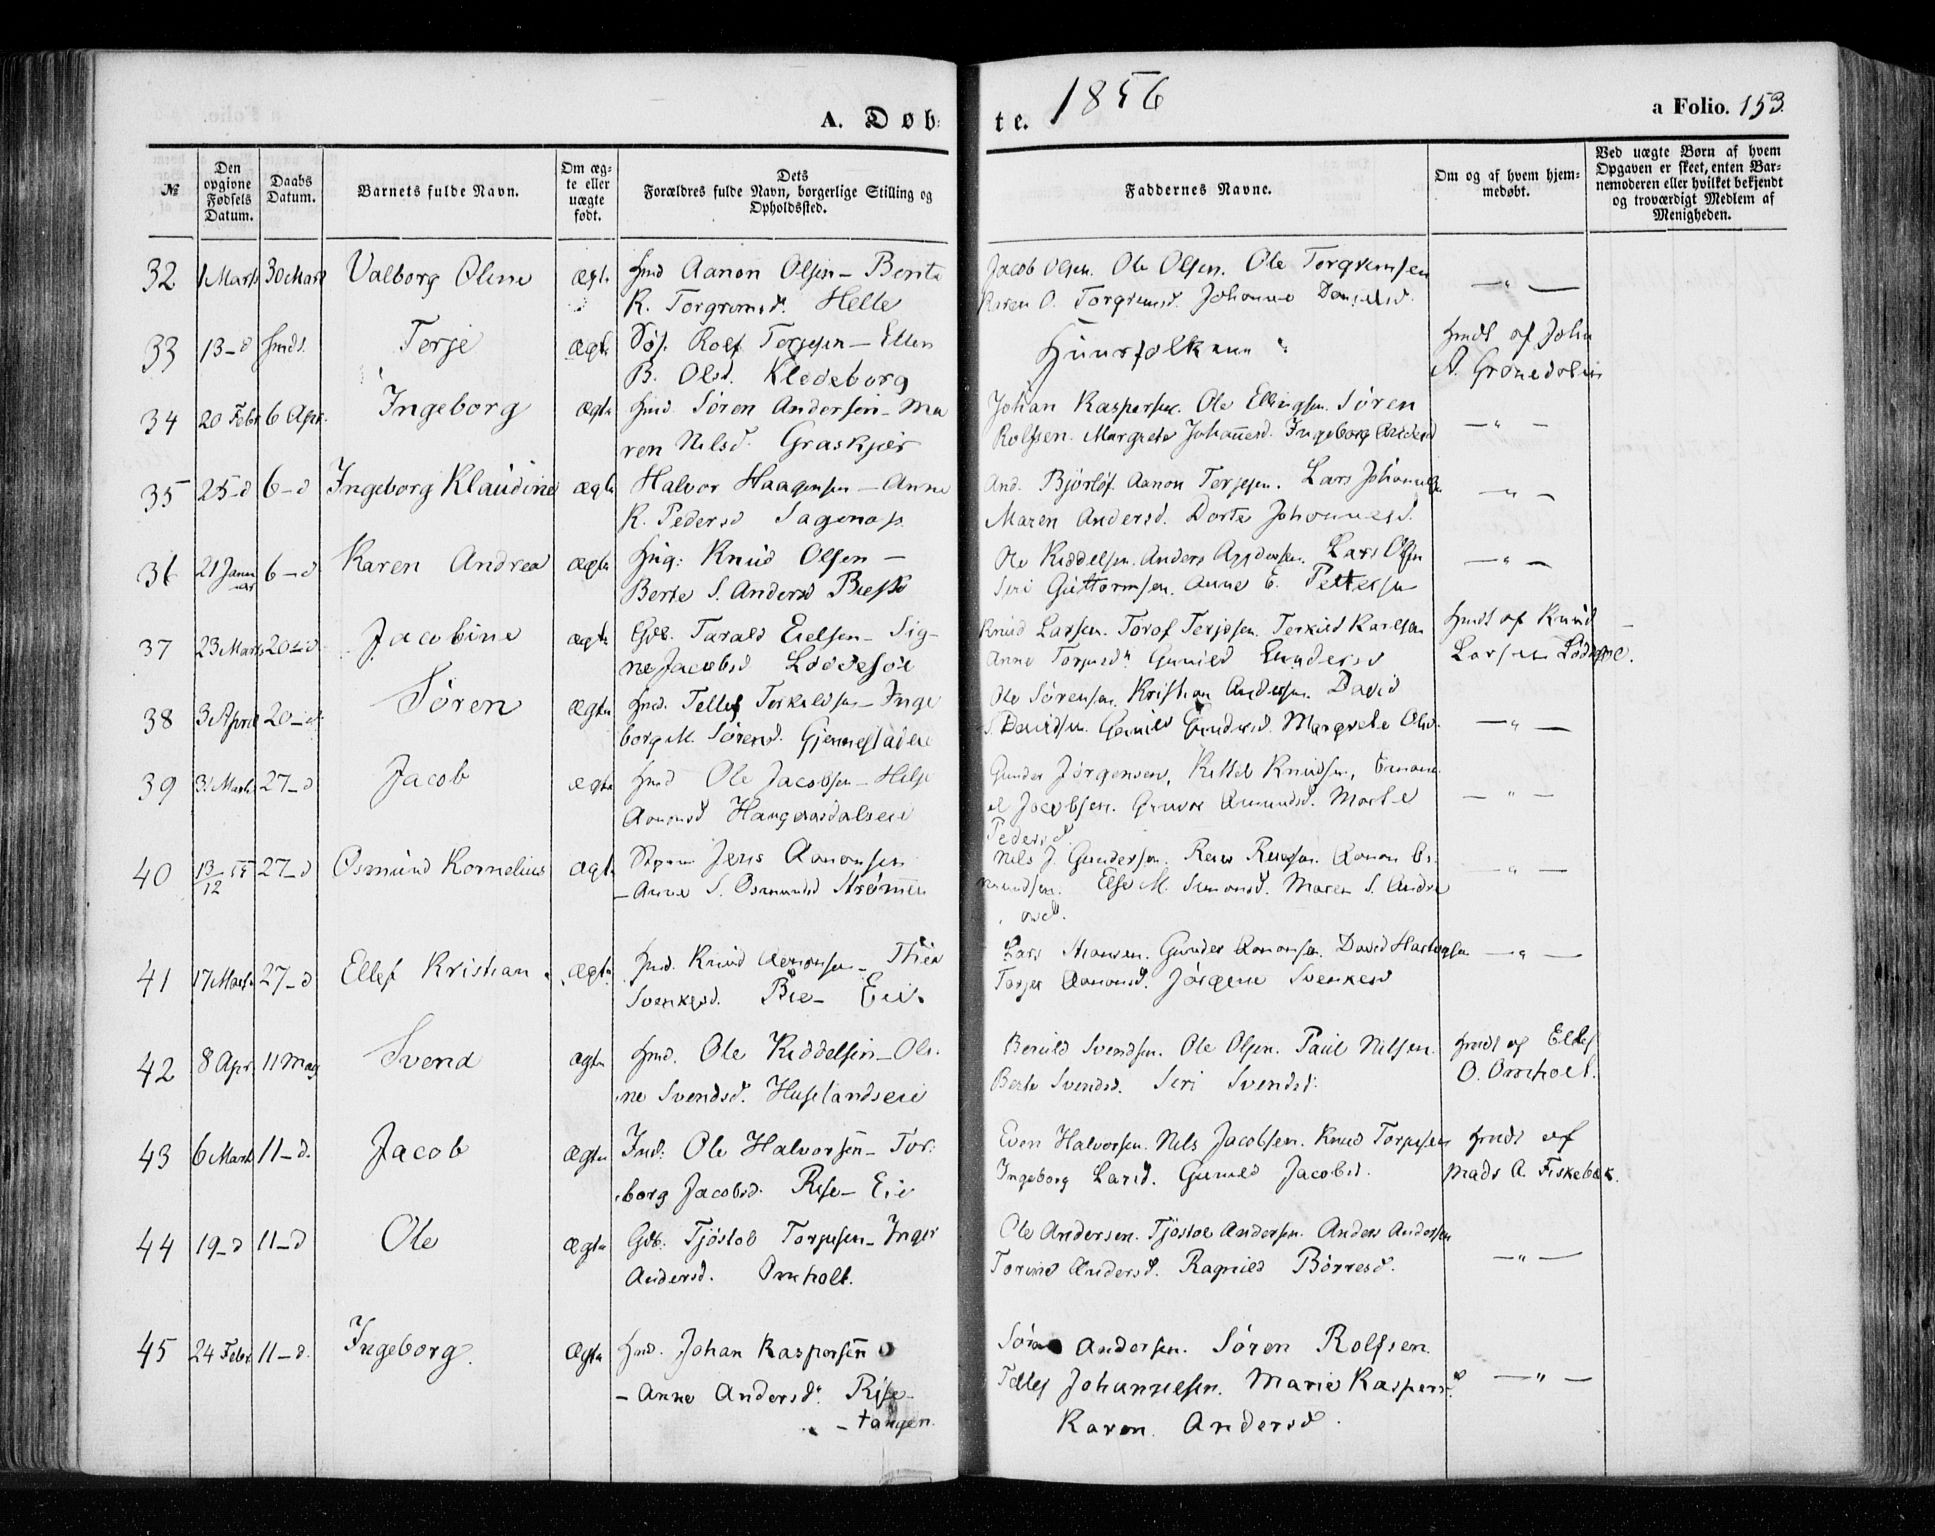 A. Døb-
te. 1856
a Folio. 153.
№
Den opgivne Fødsels Datum.
Daabs Datum.
Barnets fulde Navn.
Om ægte eller uægte født.
Dets Forældres fulde Navn, borgerlige Stilling og Opholdssted.
Faddernes Navne.
Om og af hvem hjemmedøbt.
Ved uægte Børn af hvem Opgaven er skeet, enten Barnemoderen eller hvilket bekjendt og troværdigt Medlem af Menigheden.
32 1 Marts 30 Marts Valborg Oline ægte Hmd Aanon Olsen – Bente
K. Torgrimsd. Helle
Jacob Olsen. Ole Olsen. Ole Torgrimsen — „ —
Karen O. Torgrimsd. Johanne Danielsd.
33 13 – d Hmds. Terje ægte Søf. Rolf Terjesen – Ellen
B. Olsd. Kledeborg
Huusfolkene
Hmdt af John
A. Grønedalen
34 20 Febr 6 Apr. Ingeborg ægte Hmd. Søren Andersen – Ma
ren Nilsd. Graskjær
Johan Kaspersen. Ole Ellingsen. Søren
Rolfsen. Margrete Johannesd. Ingeborg Andersd — „ —
35 25 – d 6 – d Ingeborg Klaudine ægte Halvor Haagensen – Anne
K. Pedersd Sagenæs
And. Bjørløf. Aanon Terjesen. Lars Johannesen
Maren Andersd. Dorte Johannesd. — „ —
36 21 Januar 6 – d Karen Andrea ægte Hug: Knud Olsen –
Berte S. Andersd
Ole Kiddelsen. Anders Lars Olsen
Seri Guttormsen. Anne E. Pettersen — „ —
37 23 Marts 20 – d Jacobine ægte Gdb. Tarald Eielsen – Sig-
ne Jacobsd Løddesøl
Knud Larsen. Torof Terjesen. Terkild Karlsen
Anne Gunild Gundersd
Hmdt af Knud
Larsen Lødesøl.
38 3 April 20 – d. Søren ægte Hmd. Tellef Terkeldsen – Inge
borg M. Sørensd. Gjennestadeie
Ole Sørensen. Kristian Andersen. David
S. Davidsen. Gunild Gundersd. Margrete Olsd. — „ —
39 31 Marts 27 – d Jacob ægte Hmd Ole Jacobsen – Helje
Aanonsd Haugerdalseie
Gunder Jørgensen, Kittel Knudsen, Emanu
el Jacobsen. Amundsd. Marte
Pedersd — „ —
40 13/12 55 27 – d Osmund Kornelius ægte Jens Aanonsen
– Anne S. Osmundsd Strømmen
Nils J. Gundersen. Reier Reiersen. Aanon Os-
mundsen. Else M. Simonsd. Maren S. Andre
asd. — „ —
41 17 Marts 27 – d Ellef Kristian ægte Hmd. Knud Aanonsen – Thea
Svenkesd. Bie – Eie
Lars Hansen. Gunder Aanonsen. David
Aanonsd. Jørgene Svenkesd — „ —
42 8 Apr. 11 May Svend ægte Hmd. Ole Kiddelsen – Oli-
ne Svendsd. Huslandseie
Beruld Svendsen. Ole Olsen. Paul Nilsen.
Berte Svendsd. Seri Svendsd.
Hmdt af Ellef
O. Omholt.
43 6 Marts 11 – d. Jacob ægte Ind: Ole Halvorsen – Tor-
borg Jacobsd. Rise – Eie
Even Halvorsen. Nils Jacobsen. Knud Torjusen
Ingeborg Larsd. Gunild Jacobsd.
Hmdt af
Mads A. Fiskebæk.
44 19 – d 11 – d Ole ægte Gdb: Tjøstol Torjusen – Inger
Andersd. Omholt.
Ole Andersen. Tjøstol Andersen. Anders Andersen
Torine Andersd. Ragnild Børresd. — „ —
45 24 Febr 11 – d. Ingeborg. ægte Hmd. Johan Kaspersen
– Anne Andersd. Rise-
– tangen.
Søren Andersen. Søren Rolfsen.
Tellef Johannesen. Marie Kaspersd.
Karen Andersd. — „ —